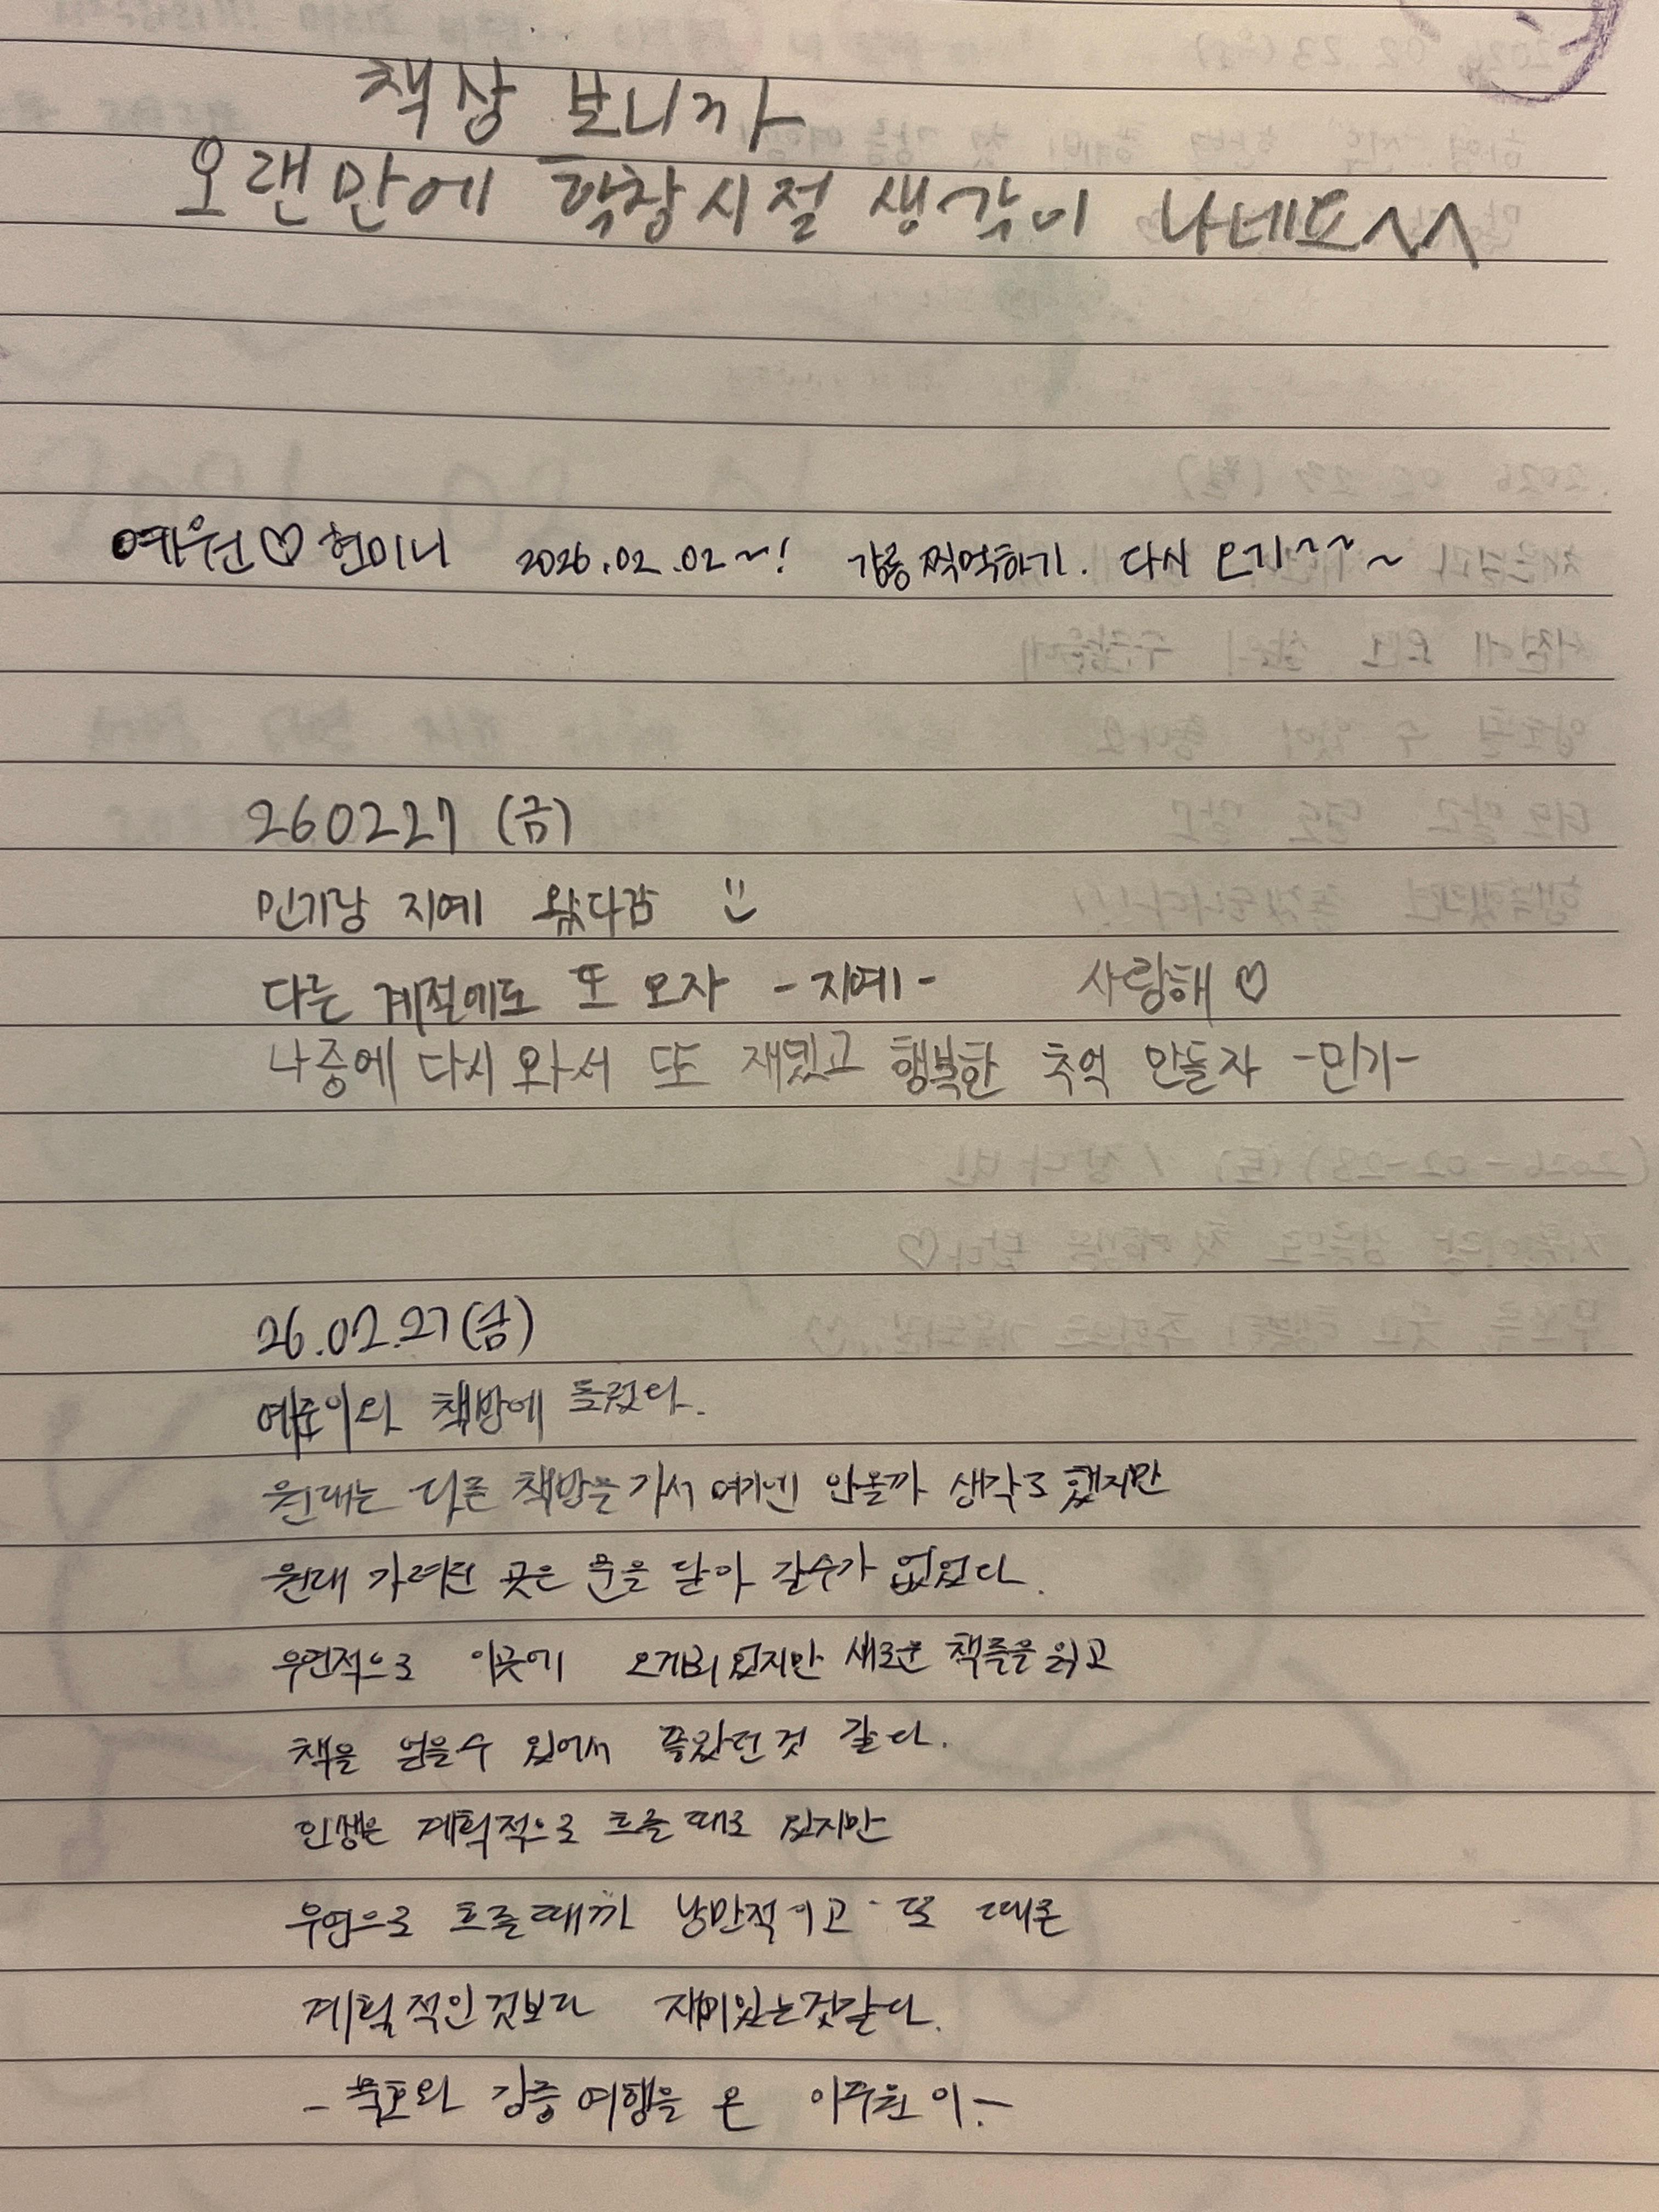 책상 보니까
오랜만에 학창시절 생각이 나네요^^
예원♡현미니 2026.02.02~! 강릉 찍먹하기. 다시 오기~~~
260227 (금)
민기랑 지예 왔다감 :)
다른 계절에도 또 오자 -지예- 사랑해♡
나중에 다시 와서 또 재밌고 행복한 추억 만들자 -민기-
26.02.27(금)
예준이와 책방에 들렀다.
원래는 다른 책방을 가서 여기넨 안올까 생각도 했지만
원래 가려던 곳은 문을 닫아 갈수가 없었다.
우연적으로 이곳에 오게 되었지만 새로운 책들을 읽고
책을 얻을수 있어서 좋았던것 같다.
인생은 계획적으로 흐를 때도 있지만
우연으로 흐를때가 낭만적이고 또 때론
계획적인것보다 재미있는것같다.
- 강릉여행을 온 이주원이.-